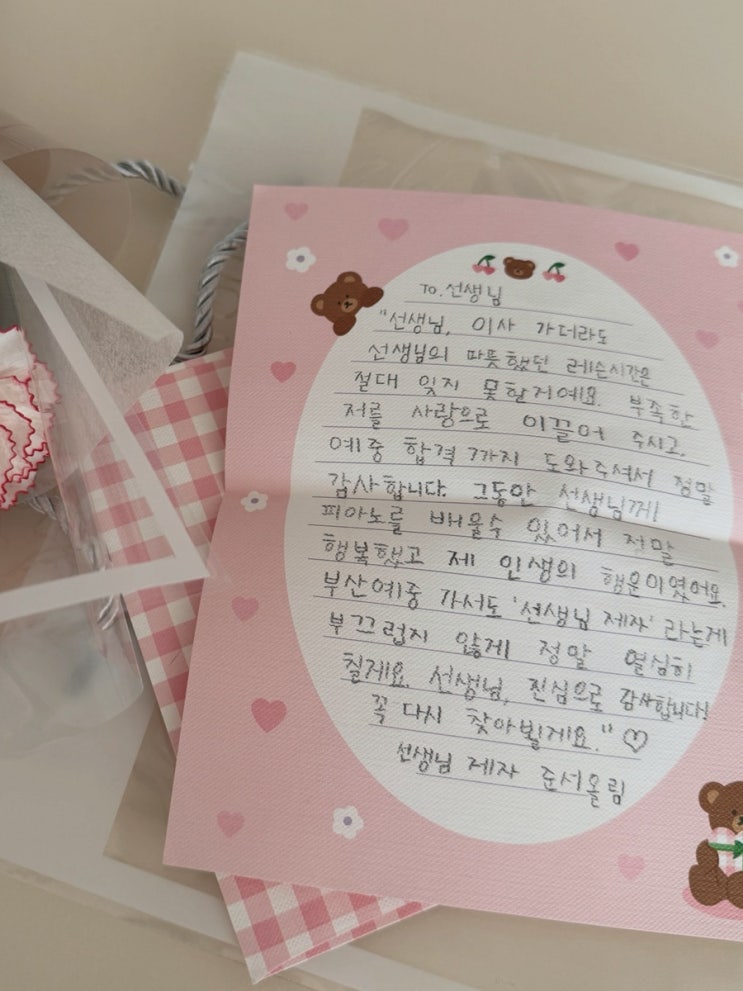 To. 선생님
"선생님, 이사 가더라도
선생님의 따뜻했던 레슨시간은
절대 잊지 못할거예요. 부족한
저를 사랑으로 이끌어 주시고,
예중 합격까지 도와주셔서 정말
감사합니다. 그동안 선생님께
피아노를 배울수 있어서 정말
행복했고 제 인생의 행운이였어요.
부산예중 가서도 '선생님 제자' 라는게
부끄럽지 않게 정말 열심히
칠게요. 선생님, 진심으로 감사합니다!
꼭 다시 찾아뵐게요." ♡
선생님 제자 준서올림